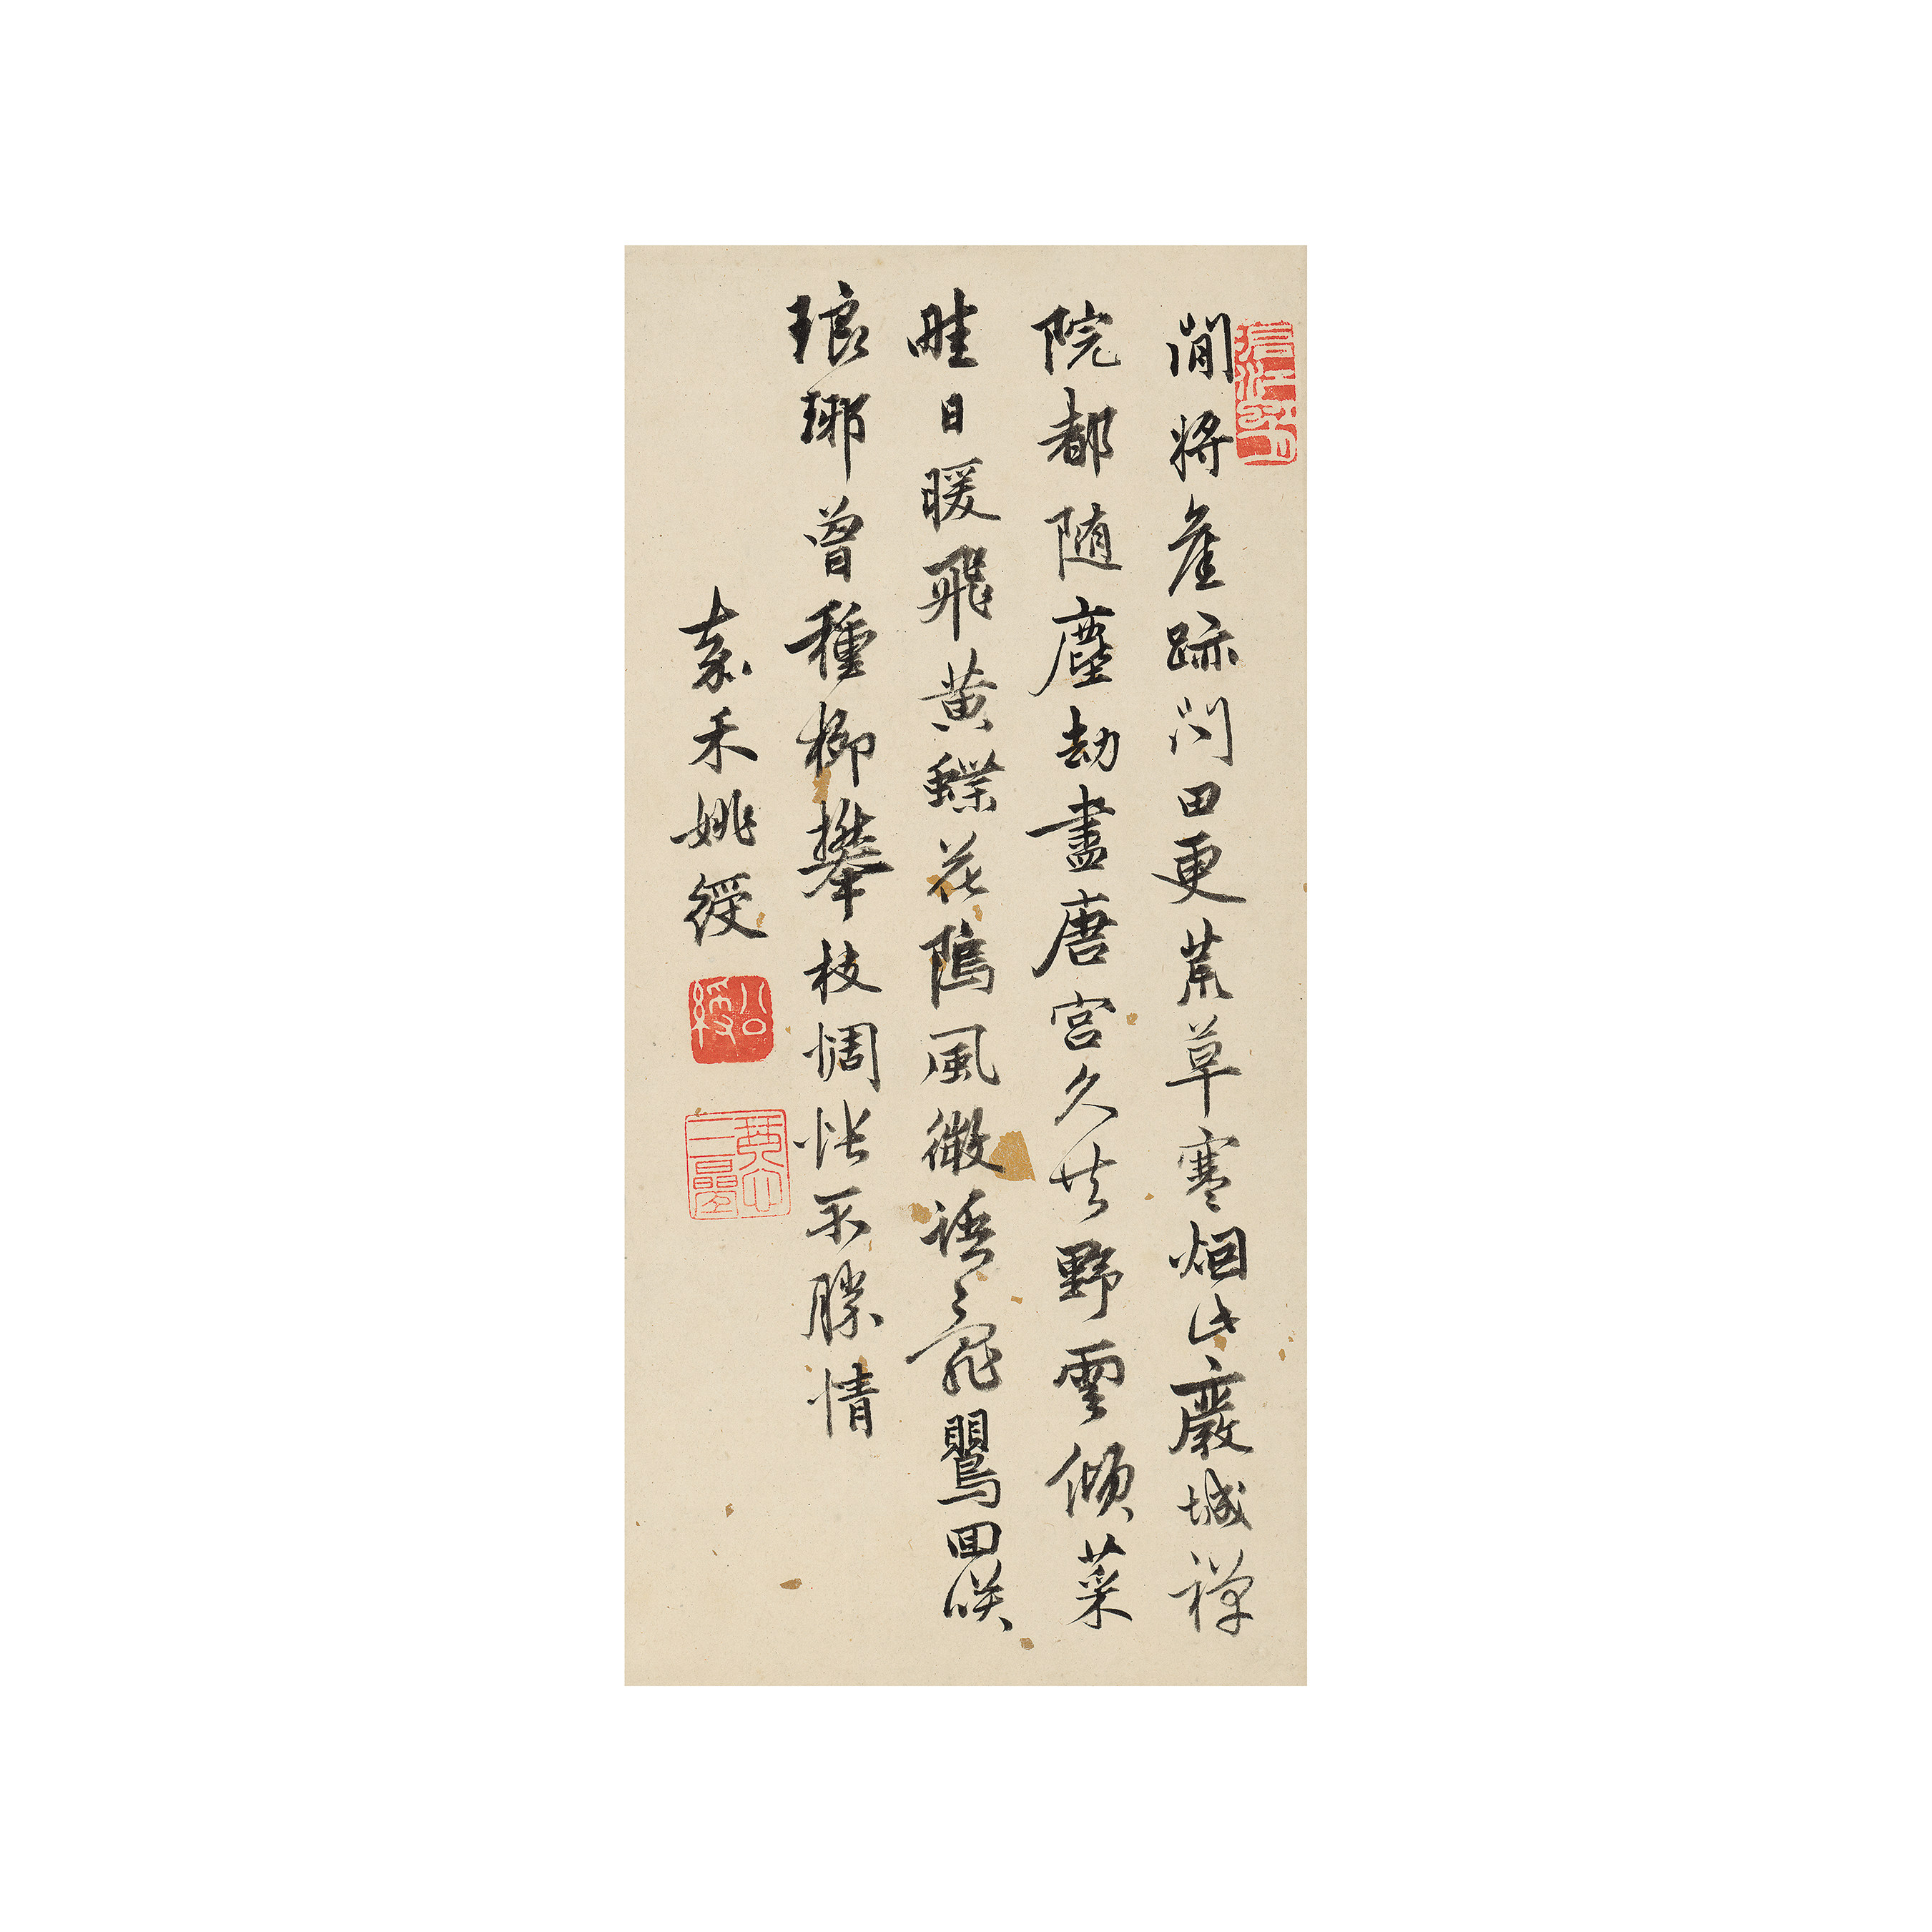 閒將跡問田更荒草寒烟此廢城禪
院都随塵劫盡唐宫久共野雲傾菜
畦日暖飛黄蝶花隖風微語亂鸎回咲
琅琊曾種柳攀枝惆悵不勝情
嘉禾姚綬
公綬